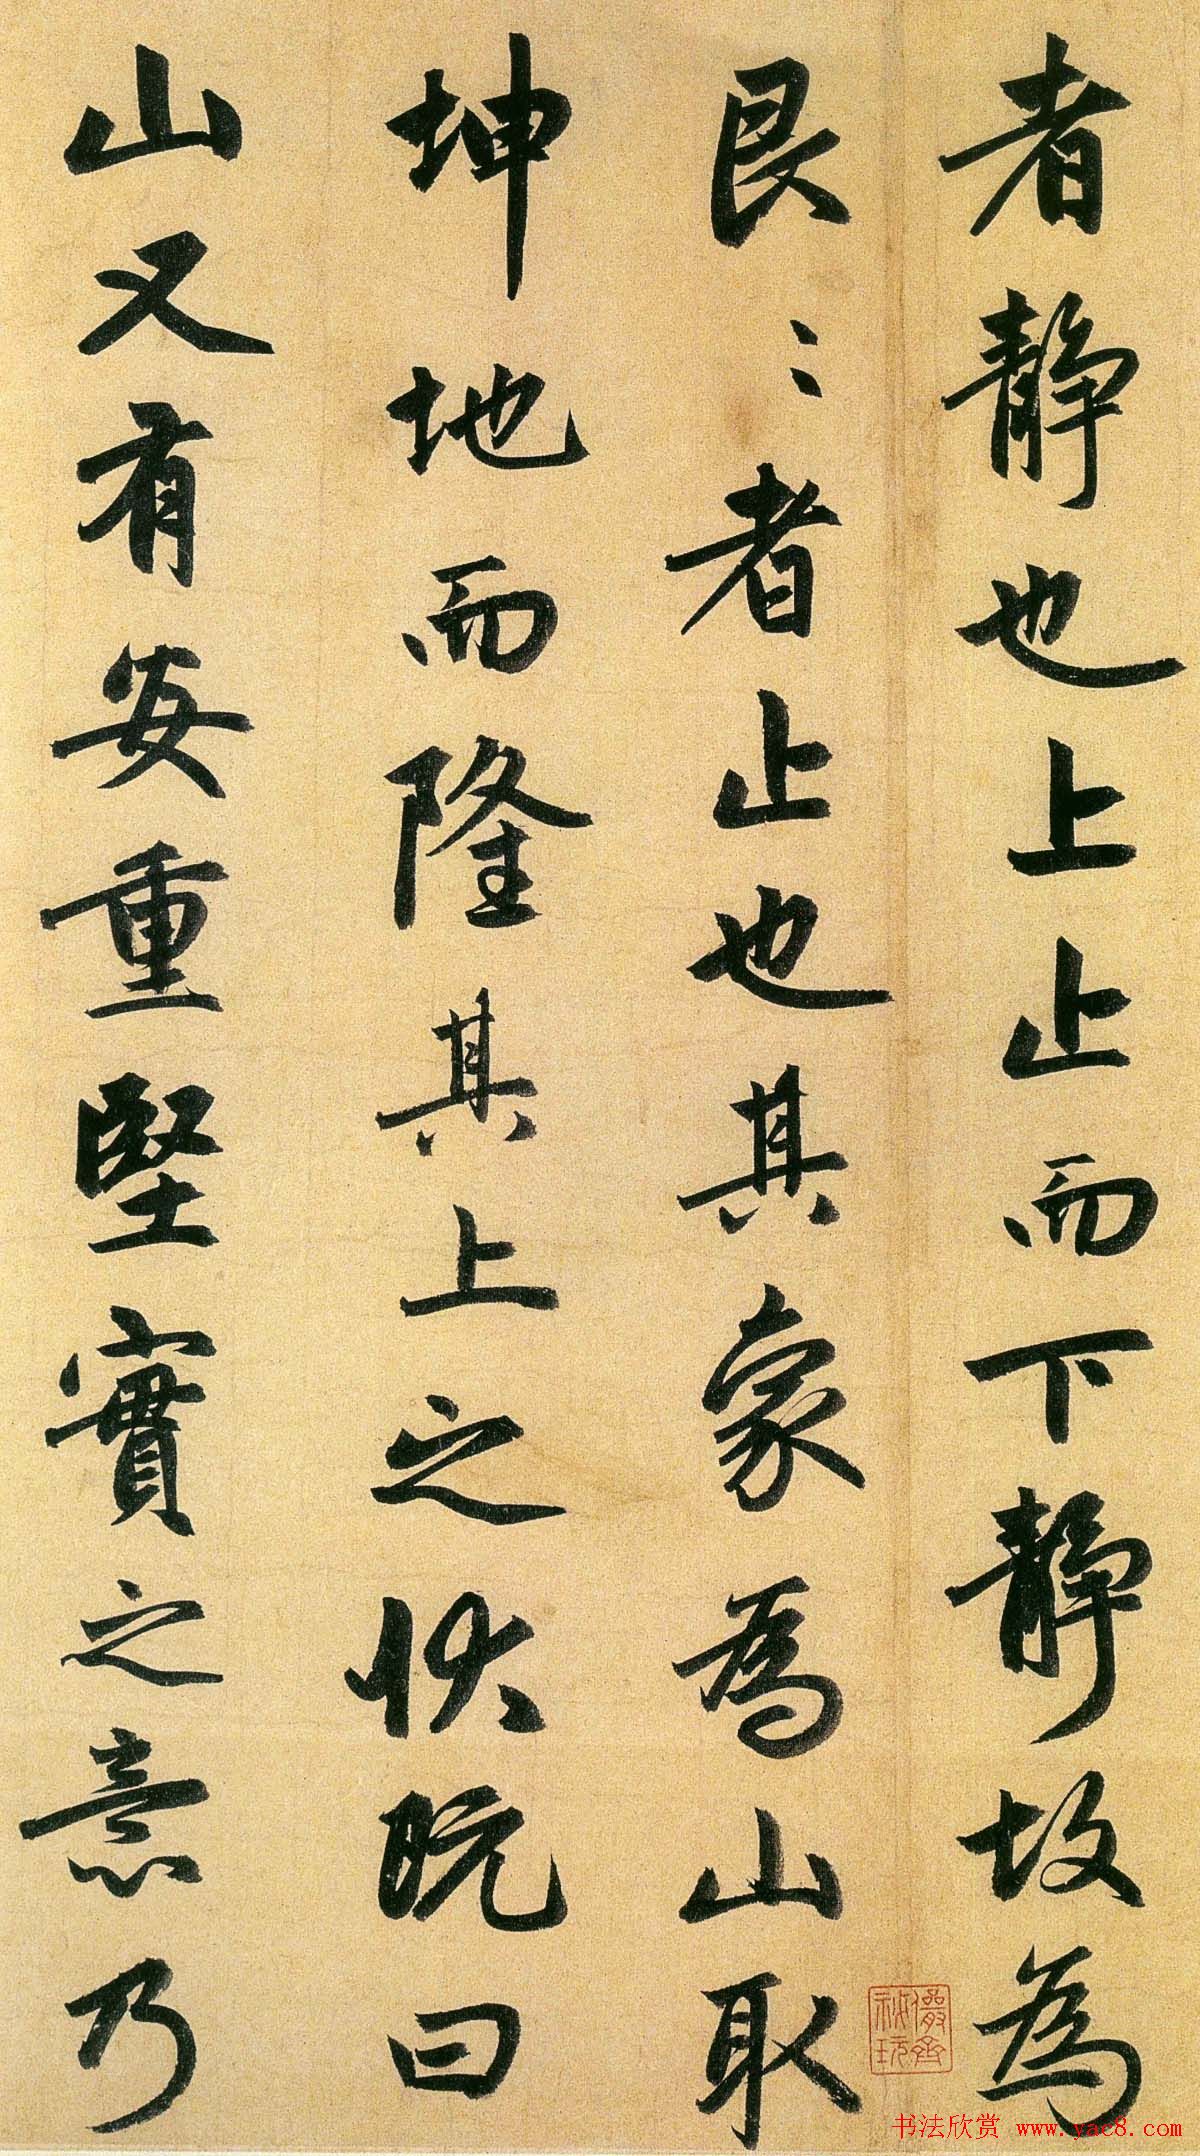 者静也上止而下静故為
艮〻者止也其象為山取
坤地而隆其上之狀既曰
山又有安重堅實之意乃
儼齋秘玩
书法欣赏 www.yac8.com